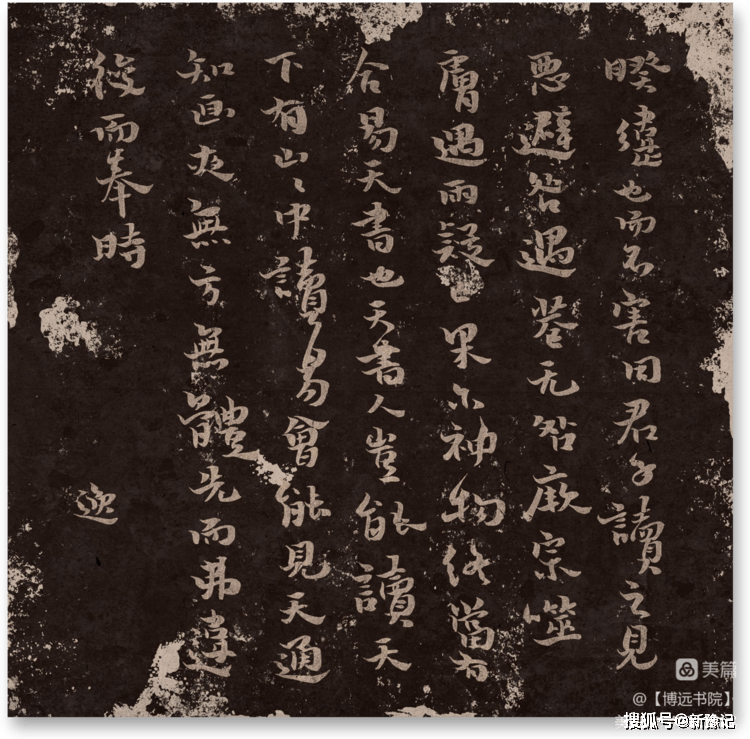 睽違也而不害同君子讀之見
惡避咎遇莝无咎厥宗噬
膚遇雨疑亡果尔神物終當有
合易天書也天書人豈能讀天
下有山山中讀易會能見天通
知画夜無方無體先而弗違
後而奉時
迩
美篇
@【博远书院】
搜狐号@新豫记